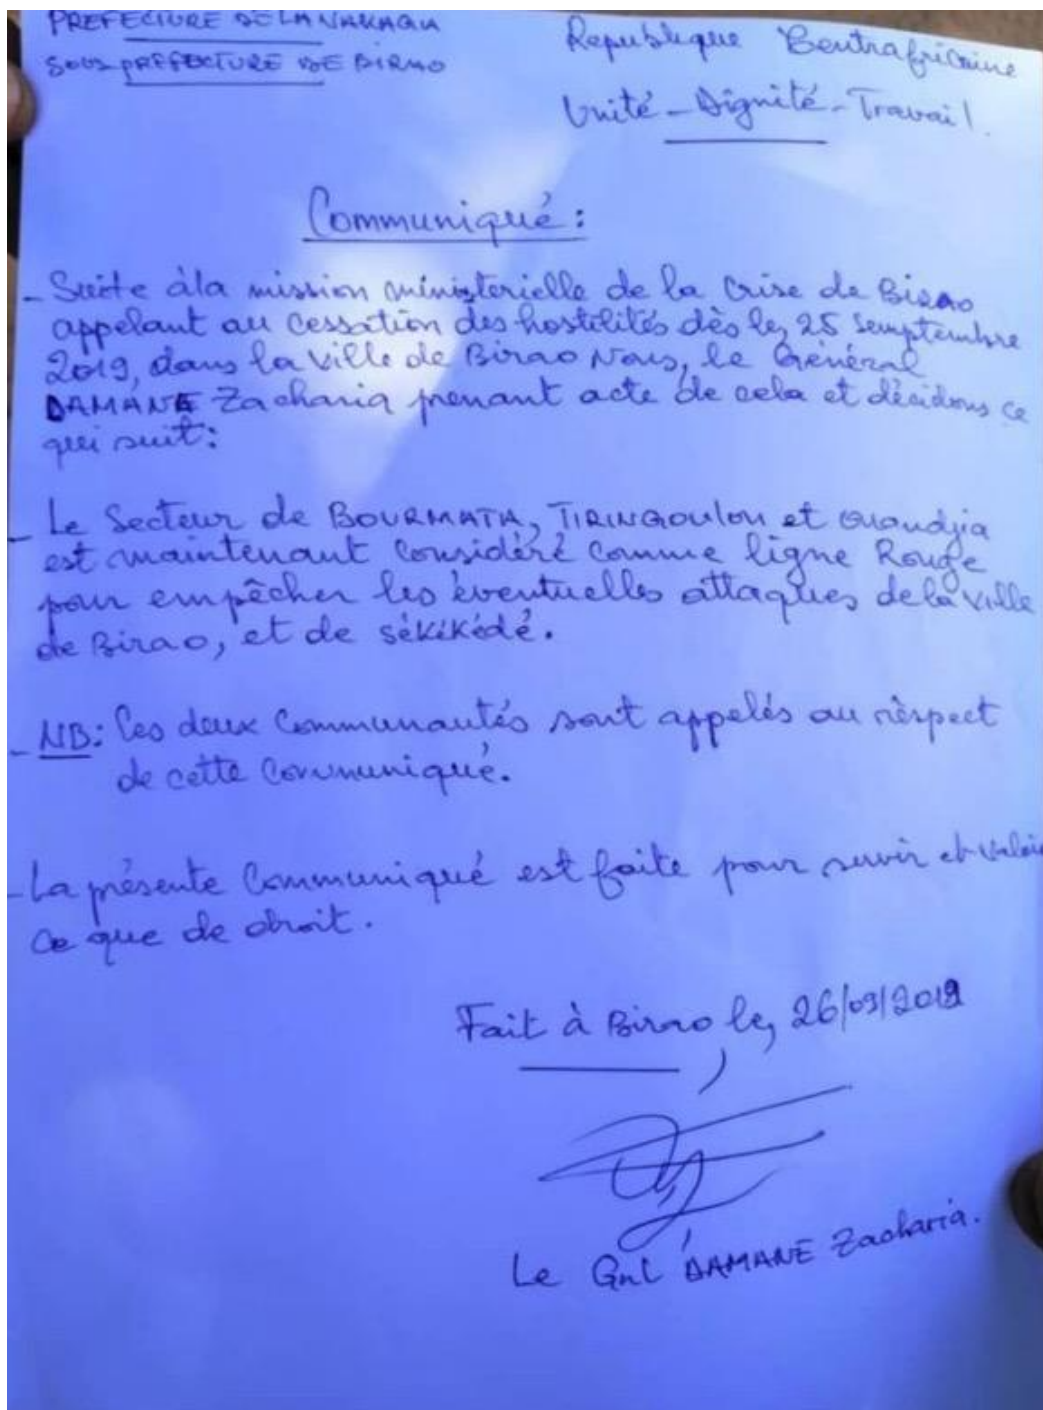 PREFECTURE DE LA VAKAGA
SOUS PREFECTURE DE BIRAO
Republique Centrafricaine
Unité - Dignité - Travail.
Communiqué:
- Suite à la mission ministerielle de la Crise de Birao
appelant au Cessation des hostilités dès le, 25 Semptembre
2019, dans la Ville de Birao Nous, le Général
DAMANE Zacharia prenant acte de cela et décidons ce
qui suit:
- Le Secteur de BOURMATA, TIRINGOULOU et Ouandjia
est maintenant Considéré comme ligne Rouge
pour empêcher les éventuelles attaques de la Ville
de Birao, et de sékikédé.
- NB: Les deux Communautés sont appelés au rèspect
de cette Communiqué.
- La présente Communiqué est faite pour servir et valoir
Ce que de droit.
Fait à Birao le, 26/09/2019
Le Gnl DAMANE Zacharia.